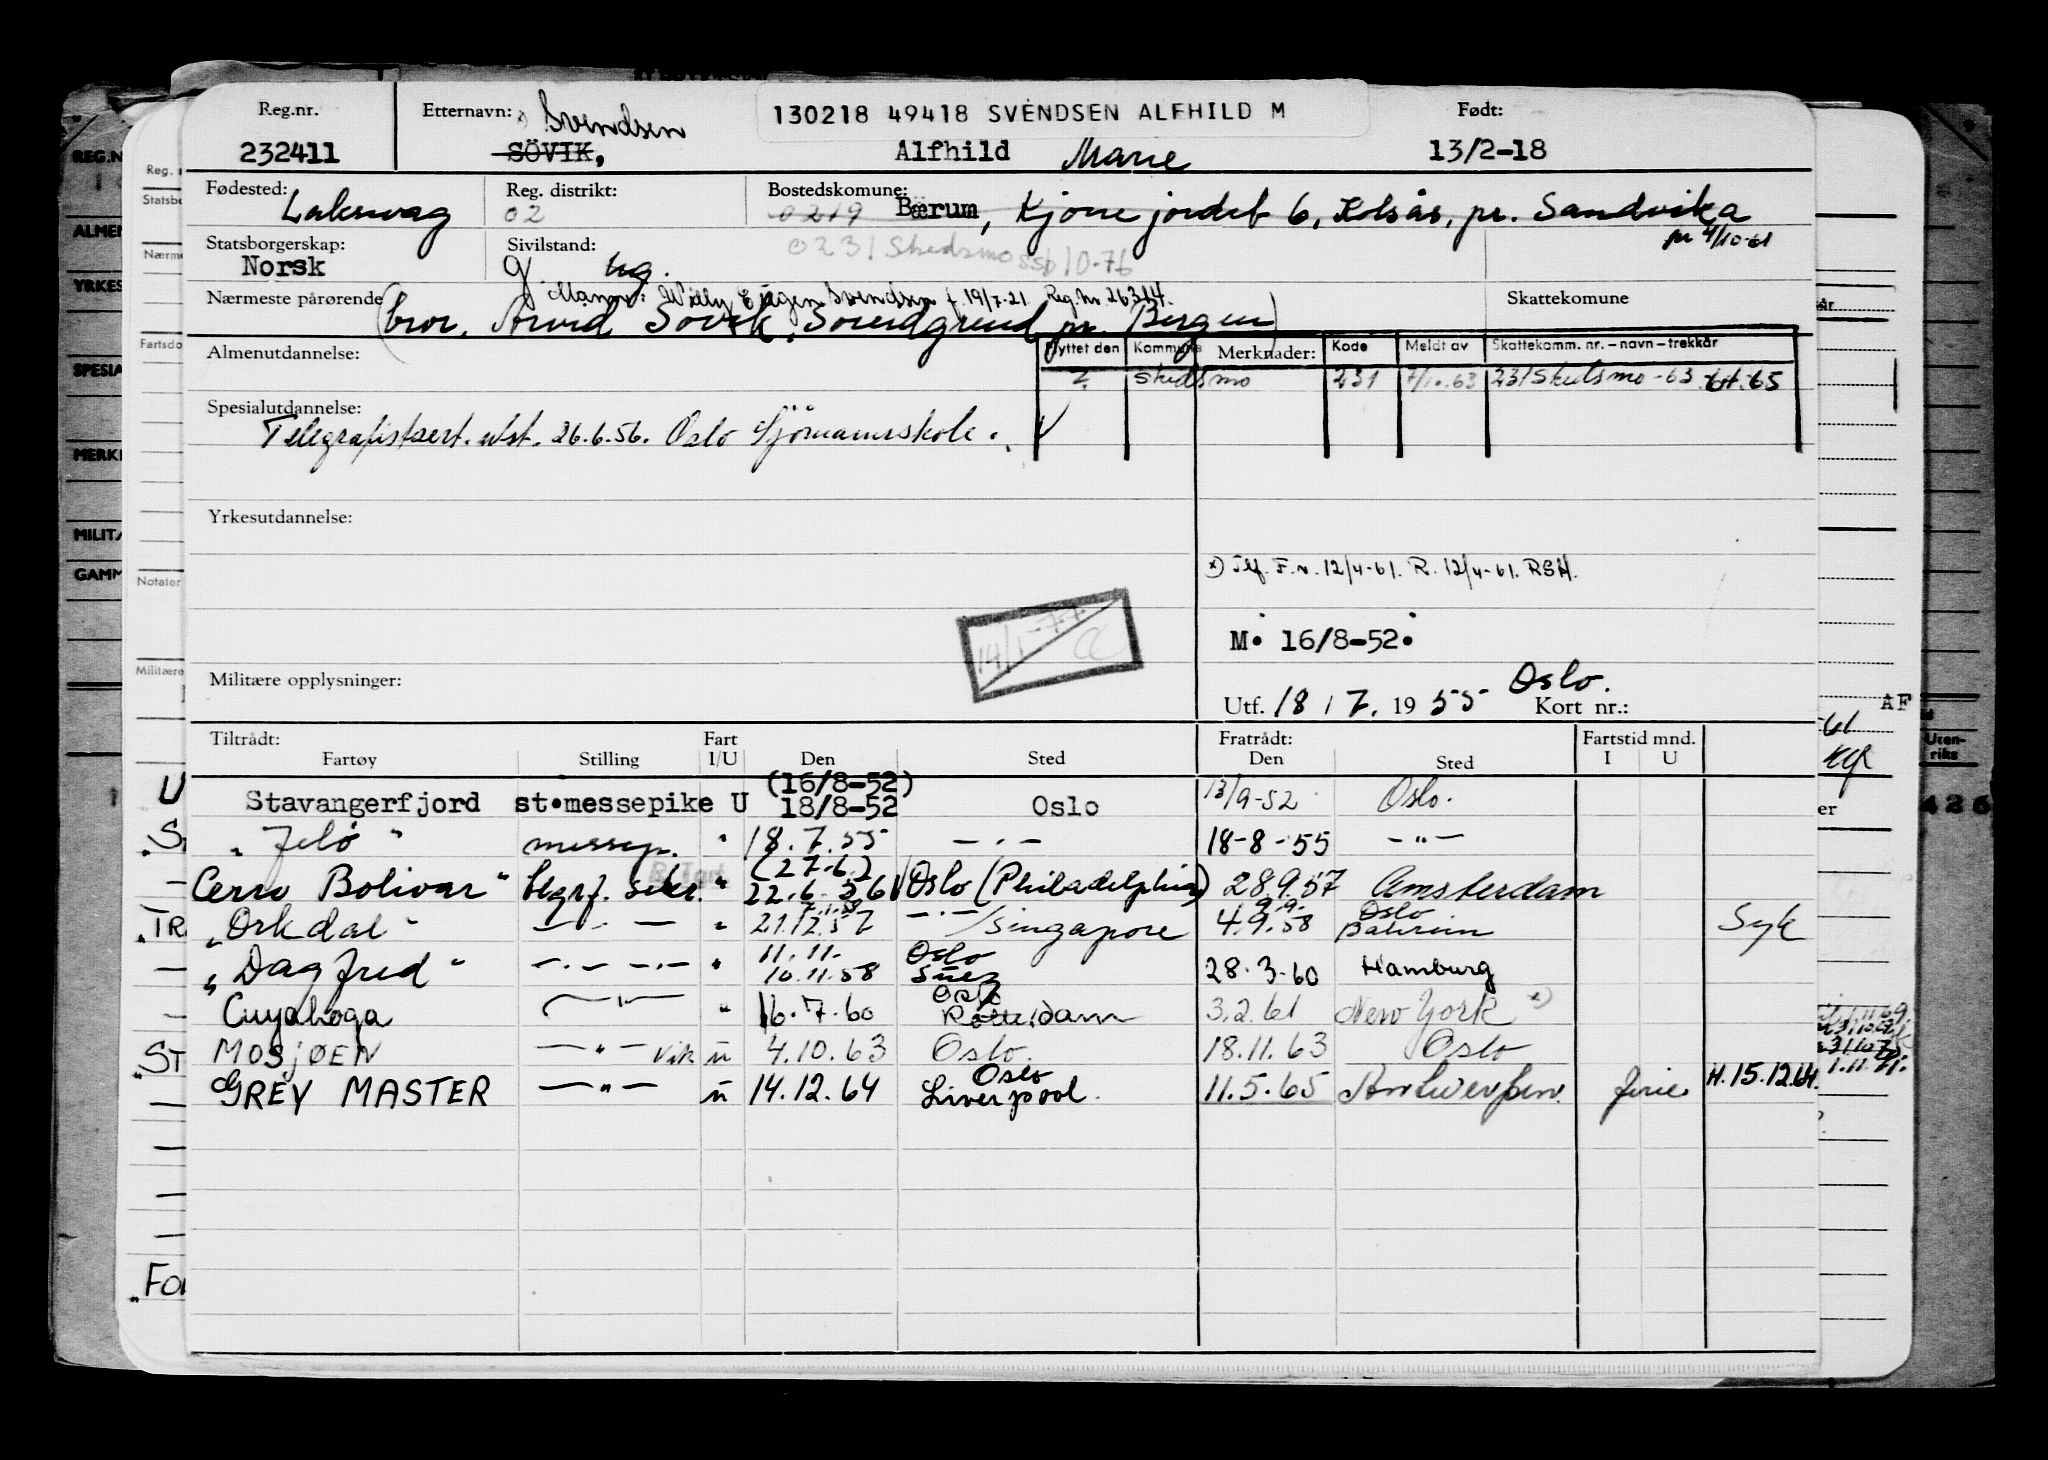 Reg.nr. Etternavn: Svendsen 130218 49418 SVENDSEN ALFHILD M Født:
232411 SÖVIK, Alfhild Marie 13/2-18
Fødested: Laksevag Reg. distrikt: 02 Bostedskommune: 0219 Bærum, Kjørrejordet 6, Kolsås, pr. Sandvika
pr 4/10-61
Statsborgerskap: Norsk Sivilstand: g ug. 0231 Skedsmo SSB 10.76
Nærmeste pårørende Mann: Willy Eugen Svendsen f. 19/7-21 Reg.Nr. 26314. Skattekomune
(bror, Arvid Sövik, Soreidgrend pr. Bergen)
Almenutdannelse: Flyttet den Kommune Merknader: Kode Meldt av Skattekomm. nr. – navn – trekkår
? Skedsmo 231 7/10.63 231 Skedsmo - 63 64.65
Spesialutdannelse:
Telegrafistsert. utst. 26.6.56. Oslo Sjömannsskole.
Yrkesutdannelse:
x) Tlf. F.n. 12/4-61. R. 12/4-61. RSH.
14/1-77
M. 16/8-52.
Militære opplysninger:
Oslo.
Utf. 18 / 7. 1955 Kort nr.:
Tiltrådt: Fart Fratrådt: Fartstid mnd.
Fartøy Stilling I/U Den Sted Den Sted I U
Stavangerfjord st.messepike U (16/8-52) 18/8-52 Oslo 13/9-52 Oslo.
"Jelö" messep. " 18.7.55 — " — 18-8-55 — " —
Cerro Bolivar" tlgrf. " (27.6.) 22.6-56 Oslo (Philadelphia) 28.9.57 Amsterdam
"Orkdal" — " — " 21.12.57 7.1.58 — " — /Singapore 4.9.58 9.9. Oslo Bahrein Syk
"Dagfred" — " — " — " 11.11. 10.11.58 Oslo Suez 28.3-60 Hamburg
Cuyahoga — " — " 16.7.60 Oslo Rotterdam 3.2.61 New York x)
MOSJØEN — " — Vik u 4.10.63 Oslo. 18.11.63 Oslo
GREY MASTER — " — u 14.12.64 Oslo Liverpool. 11.5.65 Antwerpen. ferie H.15.12.64.